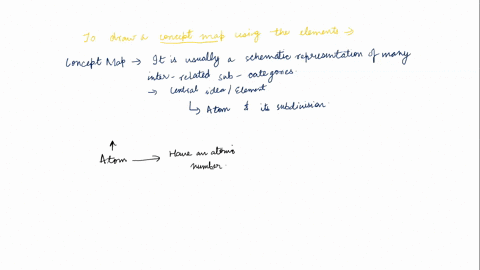 To draw a concept map using the elements →
Concept Map → It is usually a schematic representation of many
inter-related sub-categories.
→ Central idea/Element
↳ Atom & its subdivision.
↑
Atom → Have an atomic
number.